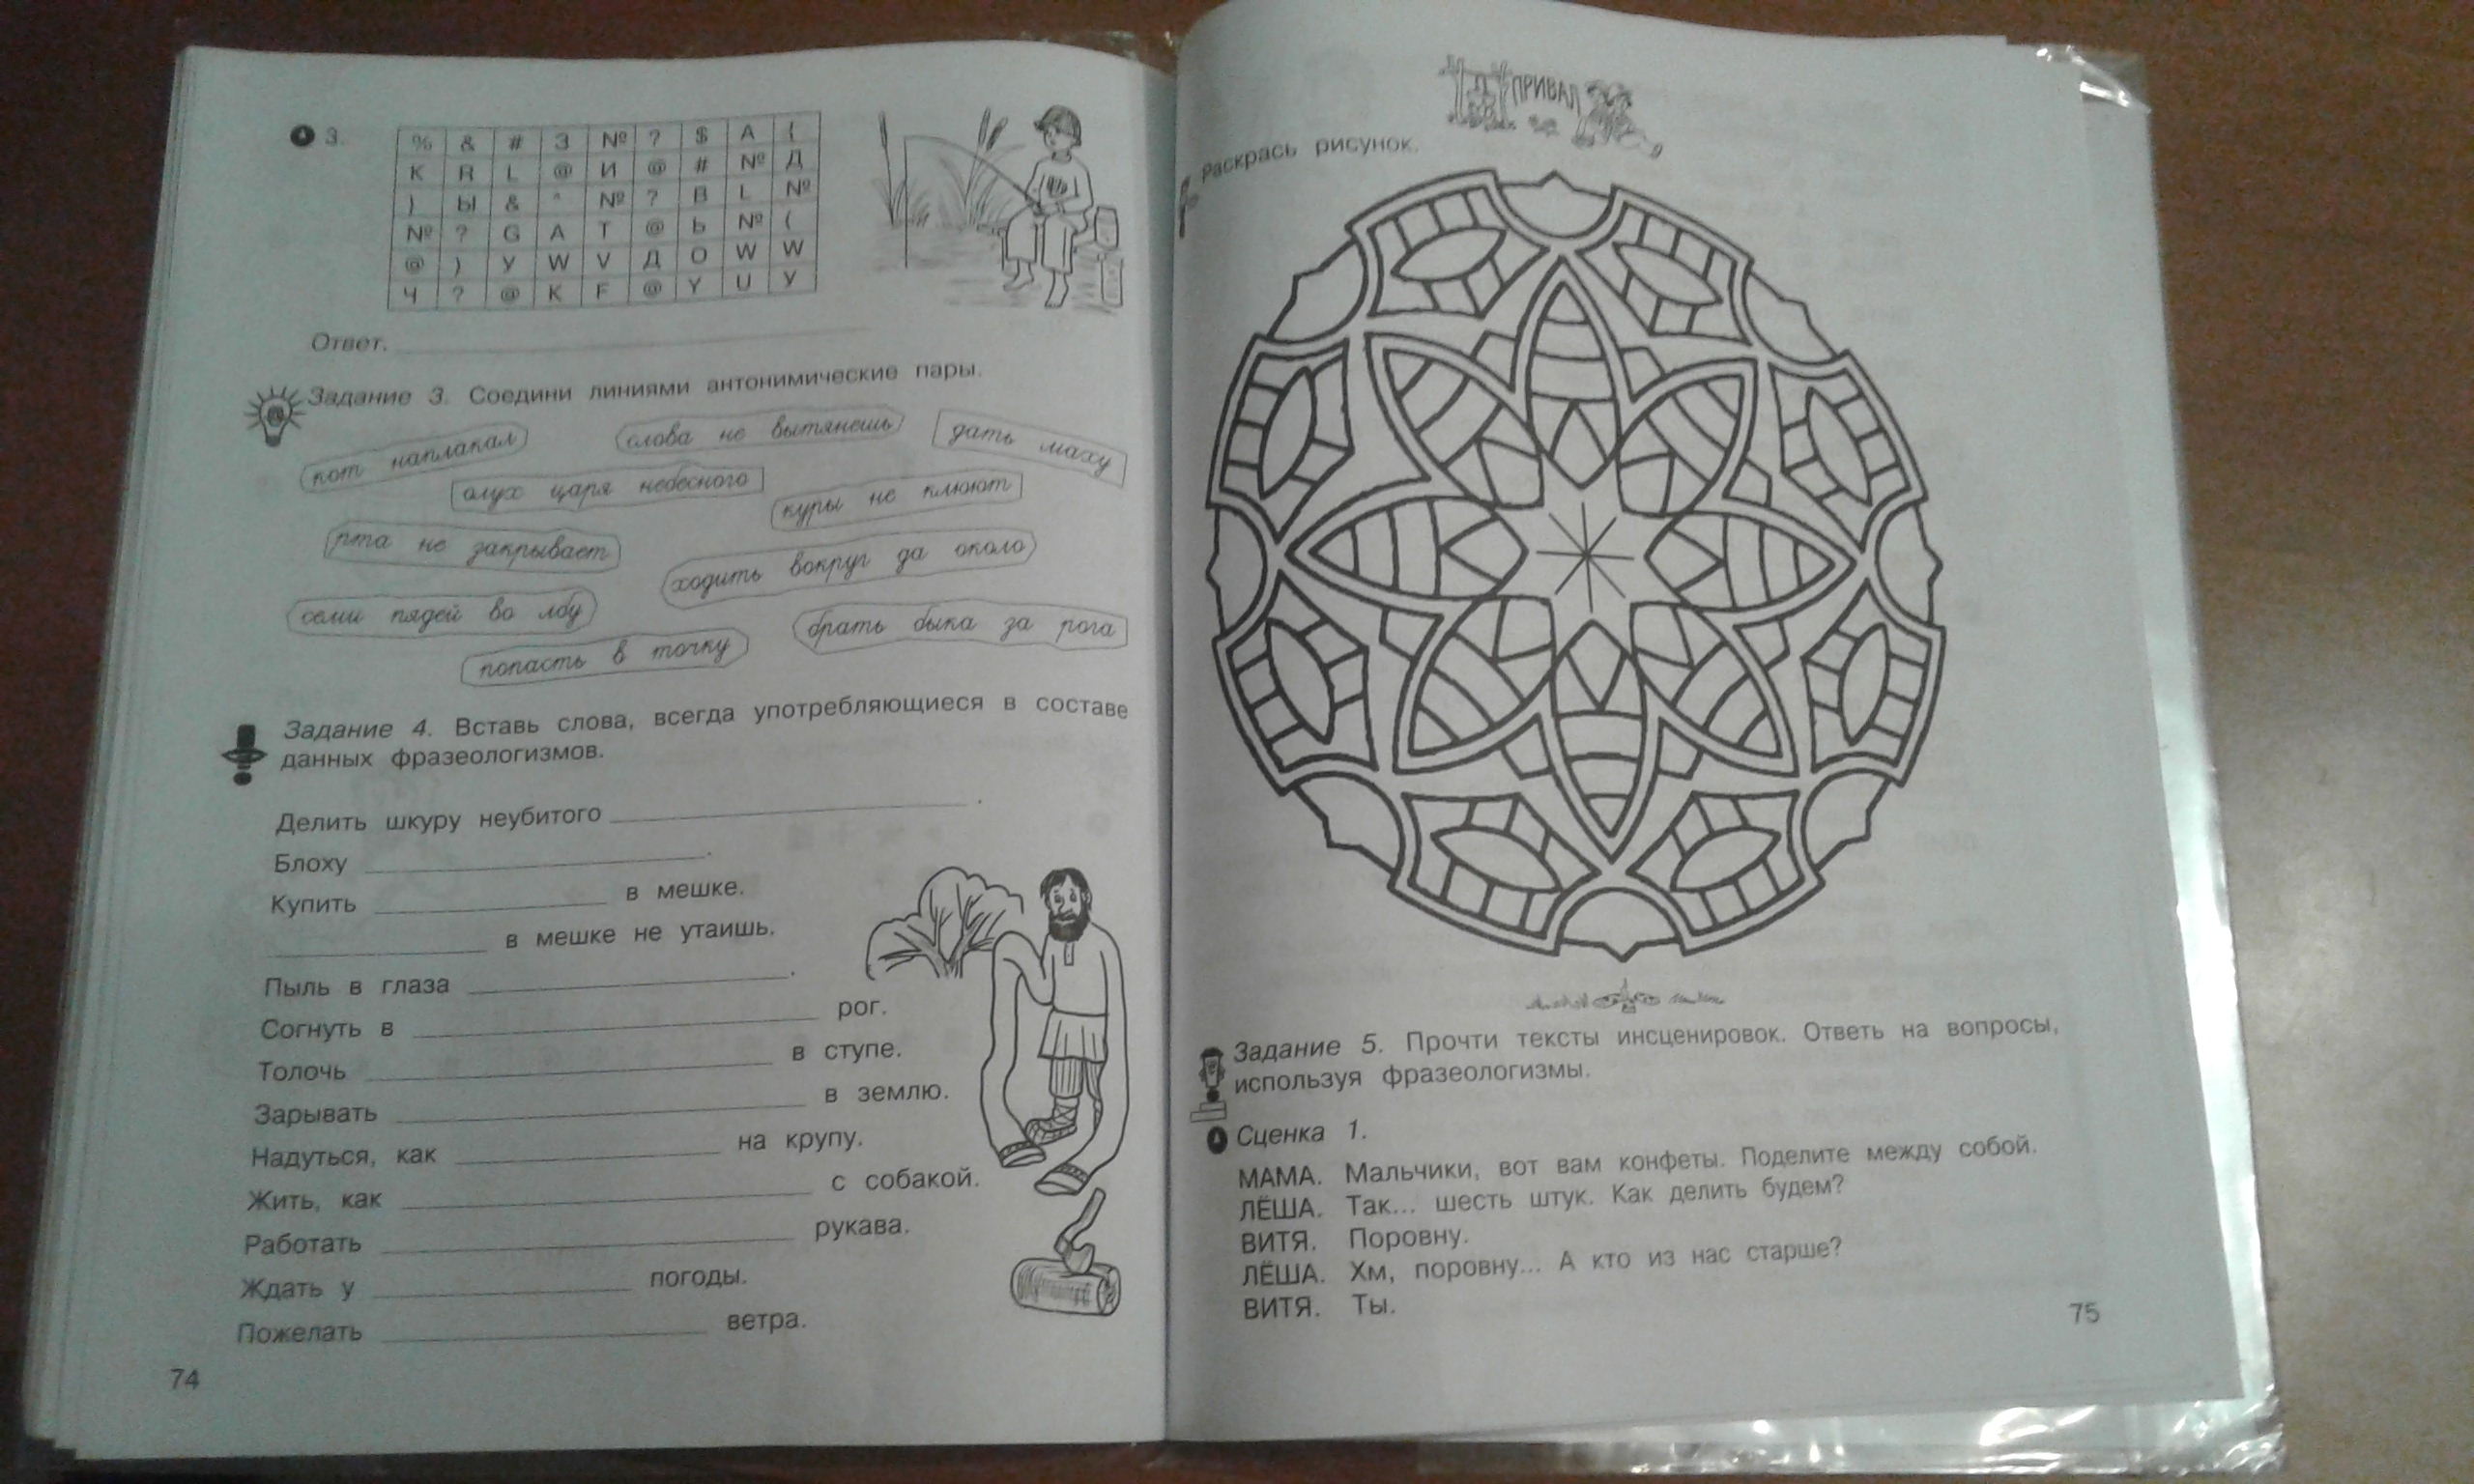 3.
% & # З № ? $ А {
К R L @ И @ # № Д
) Ы & ^ № ? В L №
№ ? G А Т @ Ь № (
@ ) У W V Д О W W
Ч ? @ К F @ Y U У
Ответ.
Задание 3. Соедини линиями антонимические пары.
кот наплакал
слова не вытянешь
дать маху
олух царя небесного
куры не клюют
рта не закрывает
ходить вокруг да около
семи пядей во лбу
брать быка за рога
попасть в точку
Задание 4. Вставь слова, всегда употребляющиеся в составе
данных фразеологизмов.
Делить шкуру неубитого ____.
Блоху ____.
Купить ____ в мешке.
____ в мешке не утаишь.
Пыль в глаза ____.
Согнуть в ____ рог.
Толочь ____ в ступе.
Зарывать ____ в землю.
Надуться, как ____ на крупу.
Жить, как ____ с собакой.
Работать ____ рукава.
Ждать у ____ погоды.
Пожелать ____ ветра.
74
ПРИВАЛ
Раскрась рисунок.
Задание 5. Прочти тексты инсценировок. Ответь на вопросы,
используя фразеологизмы.
Сценка 1.
МАМА. Мальчики, вот вам конфеты. Поделите между собой.
ЛЁША. Так... шесть штук. Как делить будем?
ВИТЯ. Поровну.
ЛЁША. Хм, поровну... А кто из нас старше?
ВИТЯ. Ты.
75